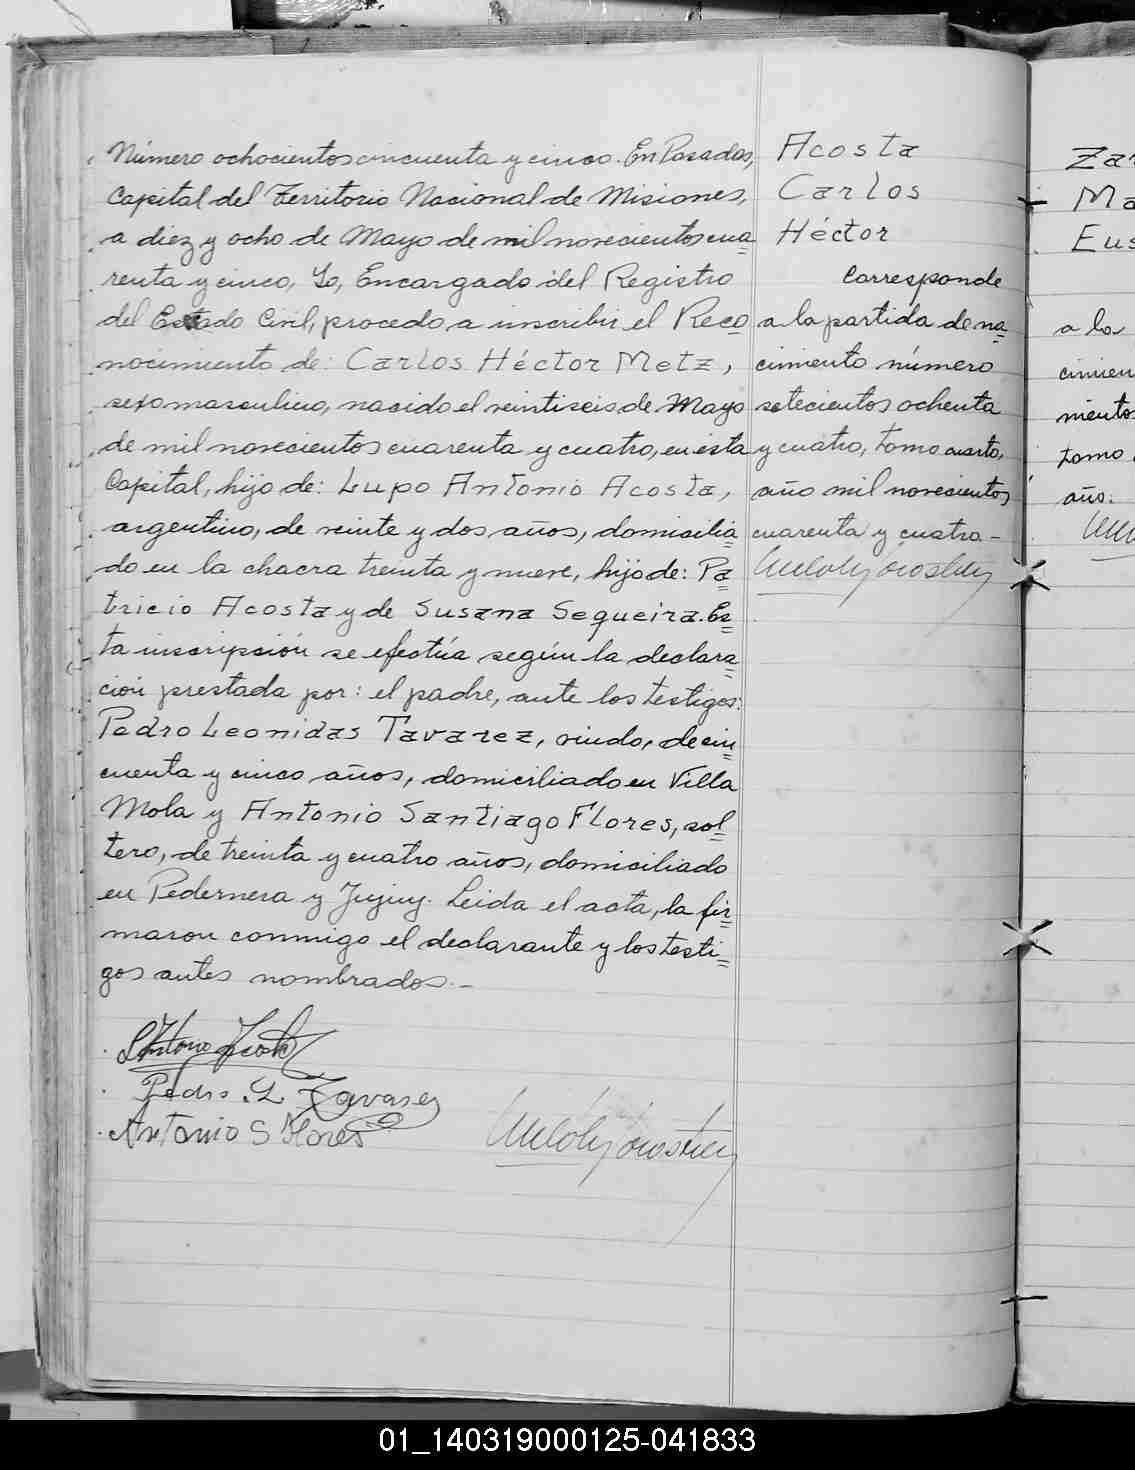 Número ochocientos cincuenta y cinco. En Posadas,
Capital del Territorio Nacional de Misiones,
a diez y ocho de Mayo de mil novecientos cua=
renta y cinco, Yo, Encargado del Registro
del Estado Civil, procedo a inscribir el Reco=
nocimiento de: Carlos Héctor Metz,
sexo masculino, nacido el veintiseis de Mayo
de mil novecientos cuarenta y cuatro, en ésta
Capital, hijo de: Lupo Antonio Acosta,
argentino, de veinte y dos años, domicilia=
do en la chacra treinta y nueve, hijo de: Pa=
tricio Acosta y de Susana Sequeira. Es=
ta inscripción se efectúa según la declara=
ción prestada por: el padre, ante los testigos:
Pedro Leonidas Tavarez, viudo, de cin=
cuenta y cinco años, domiciliado en Villa
Mola y Antonio Santiago Flores, sol=
tero, de treinta y cuatro años, domiciliado
en Pedernera y Jujuy. Leida el acta, la fir=
maron conmigo el declarante y los testi=
gos antes nombrados.-
L Antonio Acosta
Pedro L Tavarez
Antonio S Flores
Acosta
Carlos
Héctor
Corresponde
a la partida de na=
cimiento número
setecientos ochenta
y cuatro, tomo cuarto,
año mil novecientos
cuarenta y cuatro-
Zar
Ma
Eus
a la
cimien
nientos
tomo
año:
01_140319000125-041833